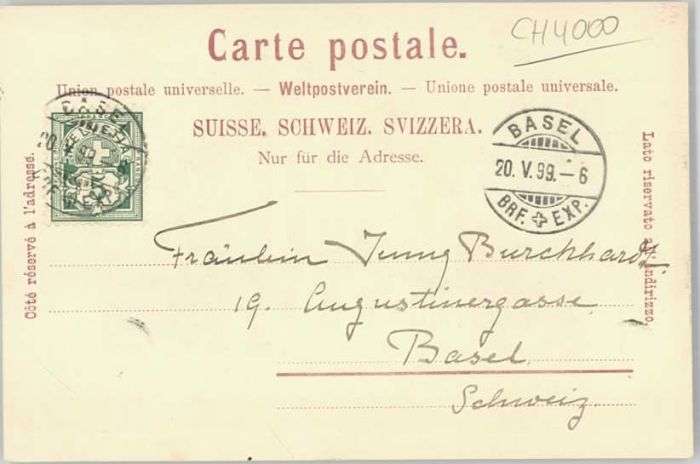 CH4000
Carte postale.
Union postale universelle. — Weltpostverein. — Unione postale universale.
SUISSE. SCHWEIZ. SVIZZERA.
Nur für die Adresse.
BASEL
20. V. 99. – 6
BRF. EXP.
BASEL
20
EXP.
Côté réservé à l'adresse.
Lato riservato all'indirizzo.
Fräulein Jenny Burckhardt
19. Augustinergasse
Basel
Schweiz